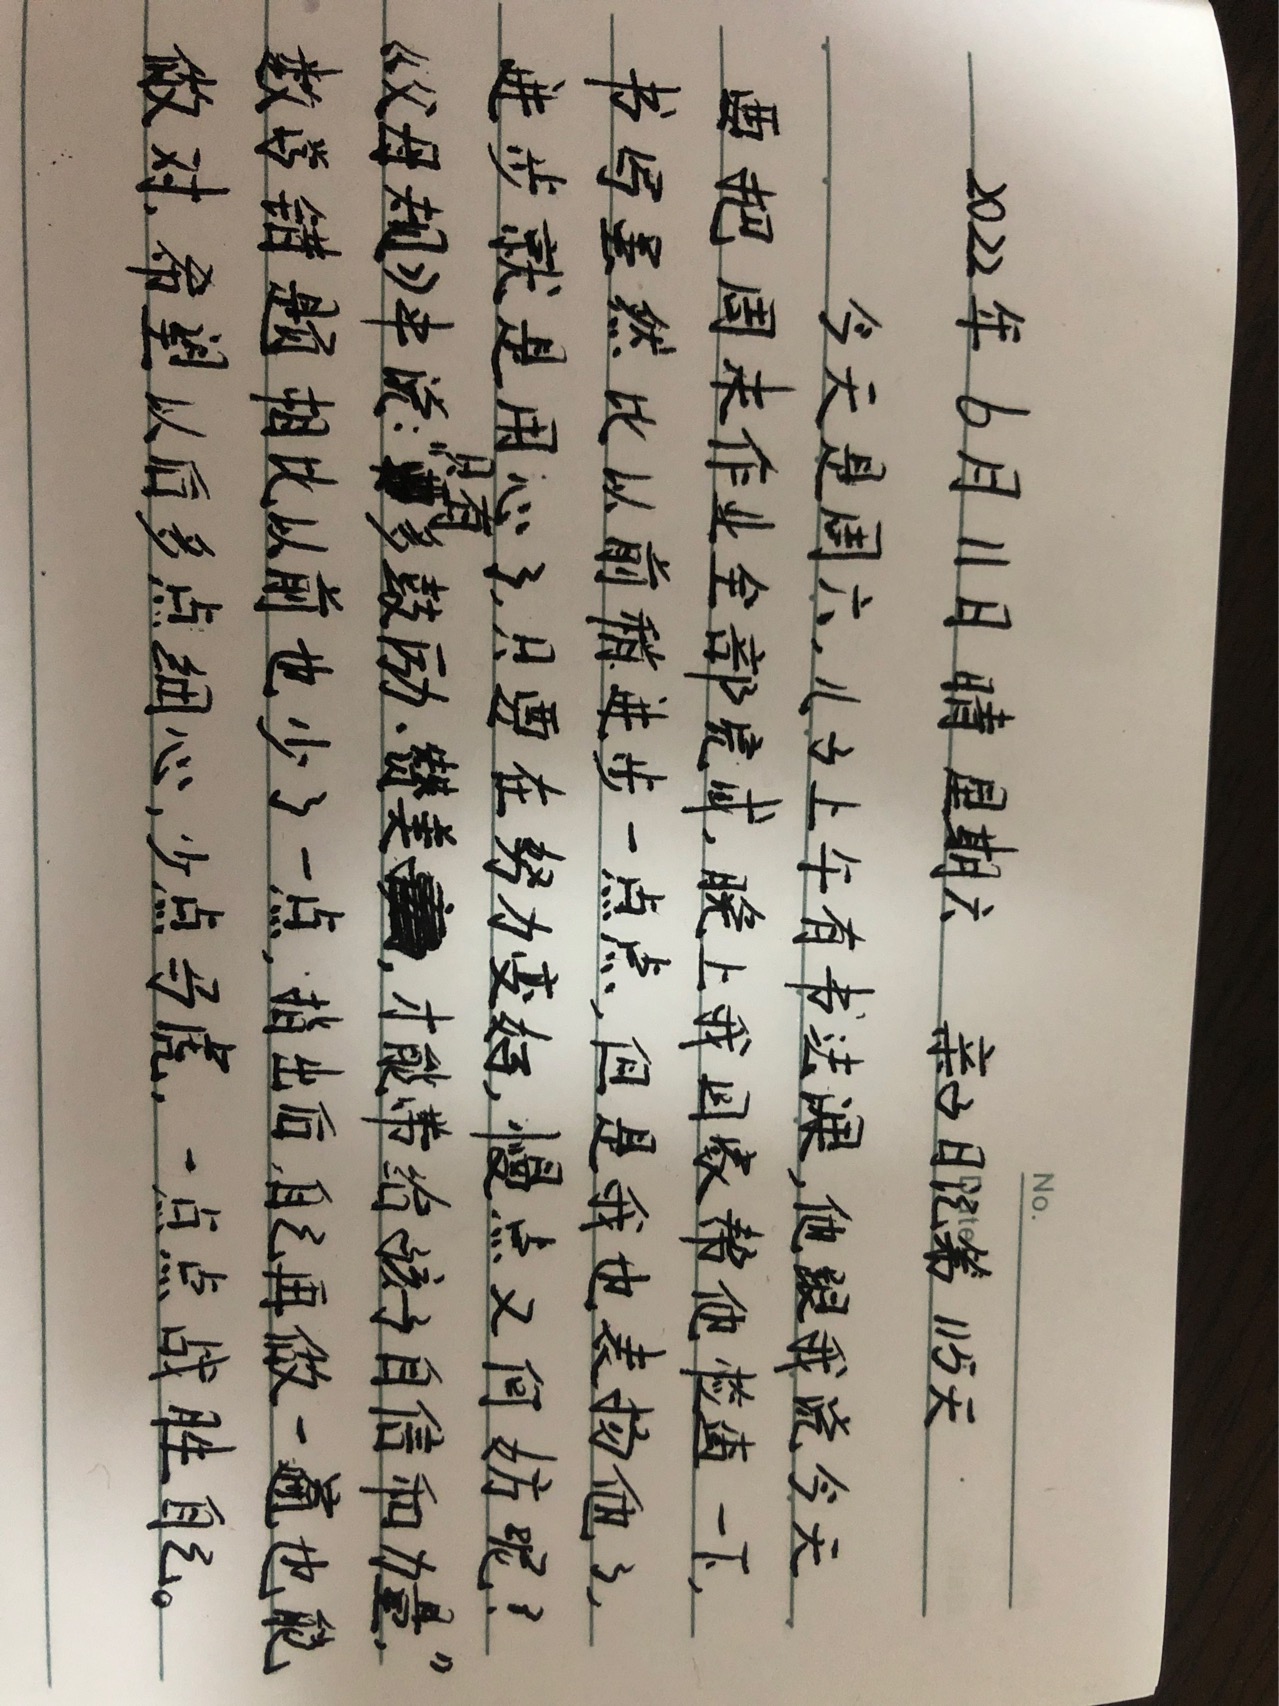 No.
2022年6月11日 晴 星期六 亲子日记第115天
今天是周六,儿子上午有书法课,他跟我说今天
要把周末作业全部完成,晚上我回家帮他检查一下,
书写虽然比以前稍进步一点点,但是我也表扬他了,
进步就是用心了,只要在努力变好,慢点又何妨呢?
《父母规》中说:“只有多鼓励、赞美,才能带给孩子自信和力量,”
数学错题相比以前也少了一点,指出后,自己再做一遍也能
做对,希望以后多点细心,少点马虎,一点点战胜自己。